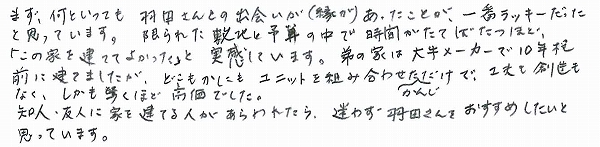 まず、何といっても 羽田さんとの出会いが(縁が)あったことが、一番ラッキーだった
と思っています。 限られた敷地と予算の中で時間がたてばたつほど、
「この家を建ててよかった」と 実感しています。弟の家は大手メーカーで10年程
前に建てましたが、どこもかしこも ユニットを組み合わせただけで、工夫も創造も
かんじ
なく、しかも驚くほど 高価でした。
知人・友人に家を建てる人があらわれたら、迷わず 羽田さんを おすすめしたいと
思っています。